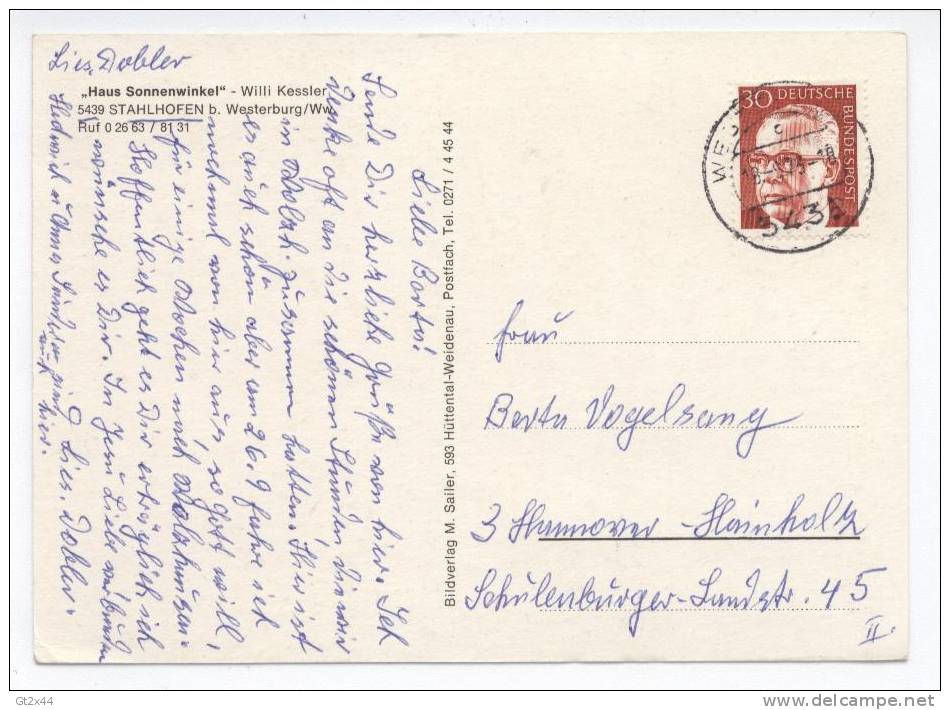 Lies. Dobler
„Haus Sonnenwinkel" - Willi Kessler
5439 STAHLHOFEN b. Westerburg/Ww.
Ruf 0 26 63 / 81 31
Liebe Berta!
Sende Dir herzliche Grüße von hier. Ich
denke oft an die schönen Stunden, die wir
in Wolzh. zusammen hatten. Hier ist
es auch schön aber am 26.9 fahre ich
nochmal von hier aus, so Gott will,
für einige Wochen nach Wolzhausen.
Hoffentlich geht es Dir erträglich ich
wünsche es Dir. In Jesu Liebe verbunden
Lies. Dobler.
Hedwich u. Anna sind
auch hier.
Bildverlag M. Sailer, 593 Hüttental-Weidenau, Postfach, Tel. 0271 / 4 45 44
30 DEUTSCHE BUNDESPOST
5439
Frau
Berta Vogelsang
3 Hannover-Hainholz
Schulenburger-Landstr. 45
II.
Gt2x44
www.delcampe.net